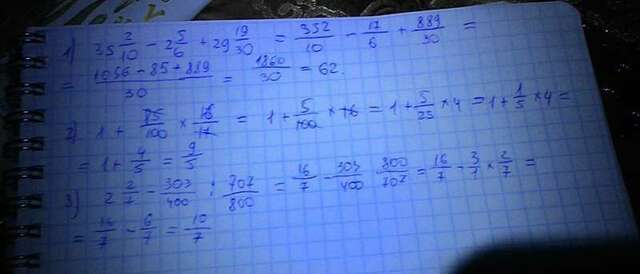 1) 35 2/10 - 2 5/6 + 29 19/30 = 352/10 - 17/6 + 889/30 =
= (1056 - 85 + 889)/30 = 1860/30 = 62.
2) 1 + 85/100 × 16/17 = 1 + 5/100 × 16 = 1 + 5/25 × 4 = 1 + 1/5 × 4 =
= 1 + 4/5 = 9/5
3) 2 2/7 - 303/400 : 707/800 = 16/7 - 303/400 · 800/707 = 16/7 - 3/7 × 2/7 =
= 16/7 - 6/7 = 10/7